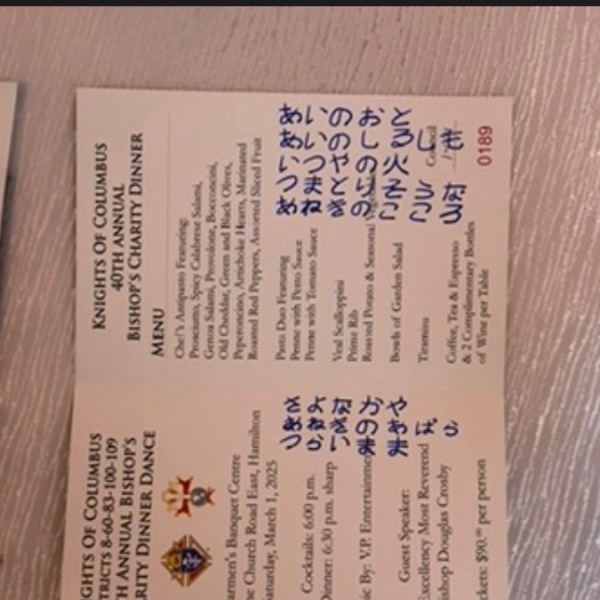 KNIGHTS OF COLUMBUS
40TH ANNUAL
BISHOP'S CHARITY DINNER
MENU
Chef's Antipasto Featuring:
Prosciutto, Spicy Calabrese Salami,
Genoa Salami, Provolone, Bocconcini,
Old Cheddar, Green and Black Olives,
Peperoncino, Artichoke Hearts, Marinated
Roasted Red Peppers, Assorted Sliced Fruit
Pasta Duo Featuring
Penne with Pesto Sauce
Penne with Tomato Sauce
Veal Scalloppini
Prime Rib
Roasted Potato & Seasonal
Bowls of Garden Salad
Tiramisu
Coffee, Tea & Espresso
& 2 Complimentary Bottles
of Wine per Table
Council
0189
あいのおと
あいのしるしも
いつやの火
つまとりそうな
あねきのここ
GHTS OF COLUMBUS
TRICTS 8-60-83-100-109
TH ANNUAL BISHOP'S
RITY DINNER DANCE
armen's Banquet Centre
he Church Road East, Hamilton
aturday, March 1, 2025
Cocktails: 6:00 p.m.
Dinner: 6:30 p.m. sharp
ic By: V.P. Entertainmen
Guest Speaker:
Excellency Most Reverend
ishop Douglas Crosby
ckets: $90.00 per person